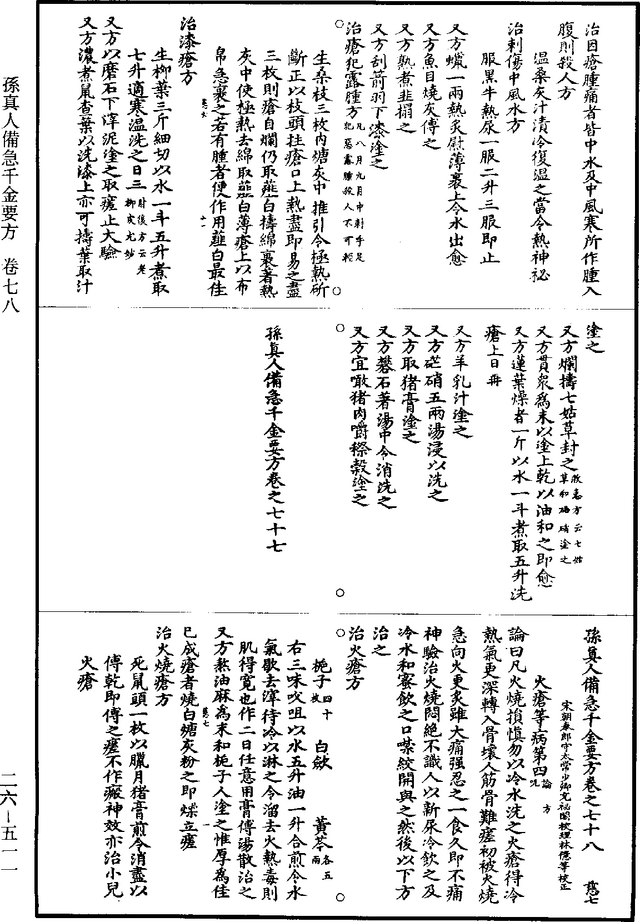 治因瘡腫痛者皆中水及中風寒所作腫入
腹則殺人方
温桑灰汁漬冷復温之當令熱神秘
治刺傷中風水方
服黑牛熱尿一服二升三服即止
又方蠟一兩熱炙熨薄裹上令水出愈
又方魚目燒灰傅之
又方熱煮韭搨之
又方刮箭羽下漆塗之
治瘡犯露腫方凡八月九月中刺手足犯惡露腫殺人不可輕
生桑枝三枚内煻灰中推引令極熱斫
斷正以枝頭拄瘡口上熱盡即易之盡
三枚則瘡自爛仍取薤白擣綿裹著熱
灰中使極熱去綿取薤白薄瘡上以布
帛急裹之若有腫者便作用薤白最佳
治漆瘡方
生柳葉三斤細切以水一斗五升煮取
七升適寒温洗之日三肘後方云老柳皮尤妙
又方以磨石下滓泥塗之取瘥止大驗
又方濃煮鼠查葉以洗漆上亦可擣葉取汁
塗之
又方爛擣七姑草封之救急方云七姑草和芒硝塗之
又方貫衆為末以塗上乾以油和之即愈
又方蓮葉燥者一斤以水一斗煮取五升洗
瘡上日再
又方羊乳汁塗之
又方芒硝五兩湯浸以洗之
又方取猪膏塗之
又方礬石著湯中令消洗之
又方宜噉猪肉嚼穄穀塗之
孫真人備急千金要方卷之七十七
孫真人備急千金要方卷之七十八
宋朝奉郎守太常少卿充秘閣校理林億等校正
火瘡等病第四論方
論曰凡火燒損慎勿以冷水洗之火瘡得冷
熱氣更深轉入骨壞人筋骨難瘥初被火燒
急向火更炙雖大痛强忍之一食久即不痛
神驗治火燒悶絶不識人以新尿冷飲之及
冷水和蜜飲之口噤絞開與之然後以下方
治之
治火瘡方
梔子四十枚 白蘞 黄芩各五兩
右三味㕮咀以水五升油一升合煎令水
氣歇去滓待冷以淋之令溜去火熱毒則
肌得寛也作二日任意用膏傅湯散治之
又方熬油麻為末和梔子人塗之惟厚為佳
已成瘡者燒白糖灰粉之即燥立瘥
治火燒瘡方
死鼠頭一枚以臘月猪膏煎令消盡以
傅乾即傅之瘥不作瘢神效亦治小兒
火瘡
孫真人備急千金要方 卷七八
二六—五一一